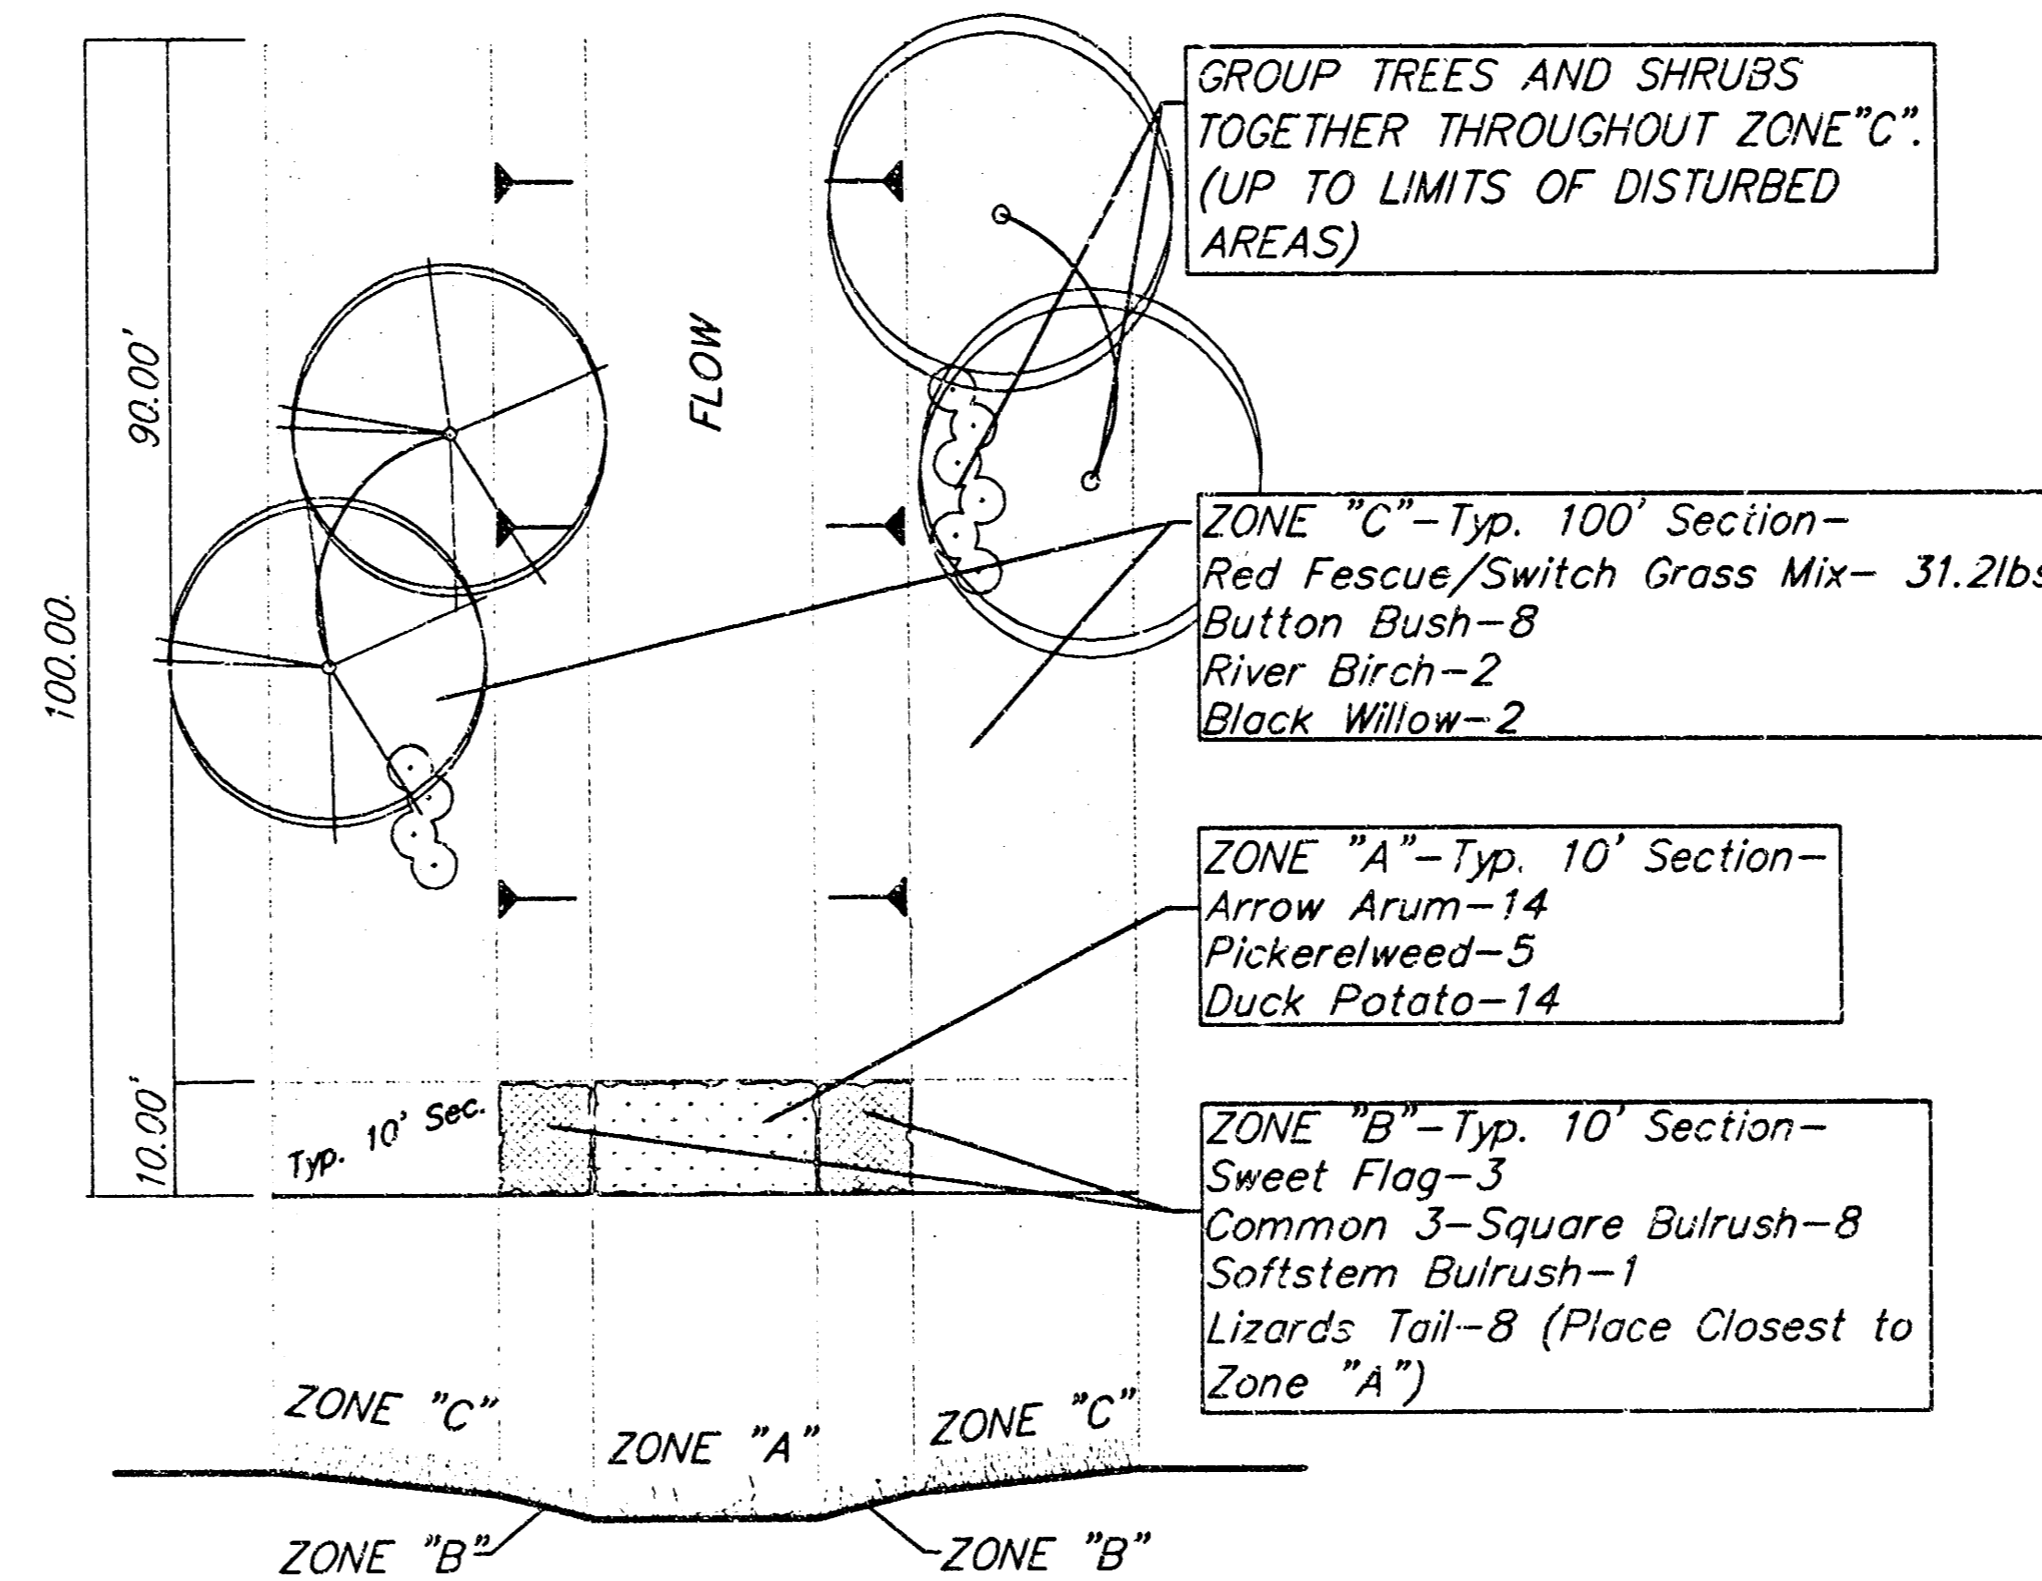 GROUP TREES AND SHRUBS
TOGETHER THROUGHOUT ZONE"C".
(UP TO LIMITS OF DISTURBED
AREAS)
90.00'
FLOW
100.00.
ZONE "C"-Typ. 100' Section-
Red Fescue/Switch Grass Mix- 31.2lbs
Button Bush-8
River Birch-2
Black Willow-2
ZONE "A"-Typ. 10' Section-
Arrow Arum-14
Pickerelweed-5
Duck Potato-14
10.00'
Typ. 10' Sec.
ZONE "B"-Typ. 10' Section-
Sweet Flag-3
Common 3-Square Bulrush-8
Softstem Bulrush-1
Lizards Tail-8 (Place Closest to
Zone "A")
ZONE "C"
ZONE "A"
ZONE "C"
ZONE "B"
ZONE "B"